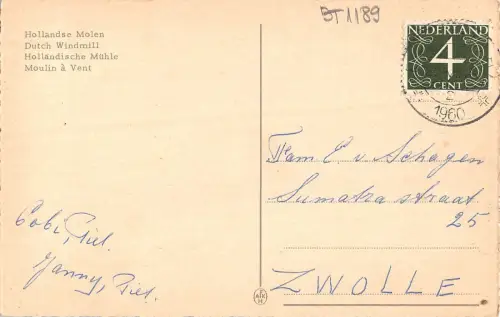 Hollandse Molen
Dutch Windmill
Holländische Mühle
Moulin à Vent
BT1189
NEDERLAND
4
CENT
2
1960
Fam E. v. Schagen
Sumatra straat
25
ZWOLLE
Cobi, Piet.
Janny, Piet.